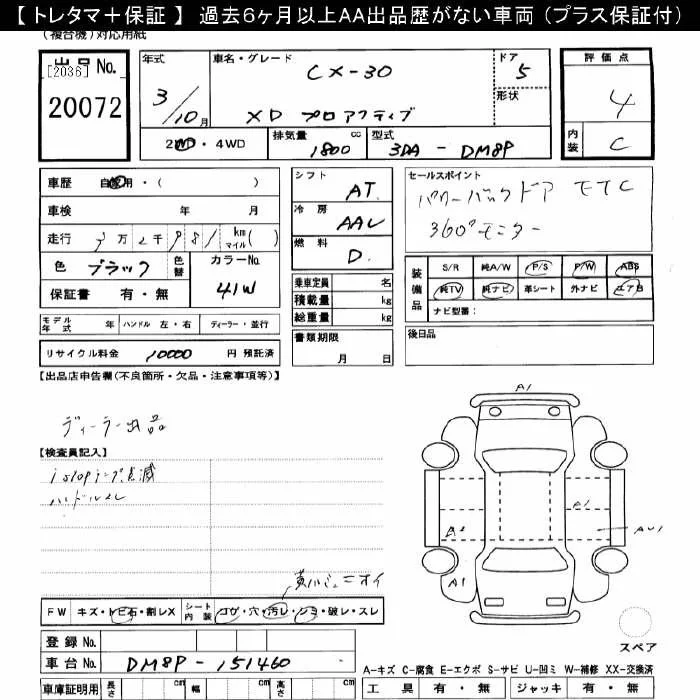 【 トレタマ＋保証 】 過去6ヶ月以上AA出品歴がない車両（プラス保証付）
（複合機）対応用紙
出品No. [2036]
20072
年式 3/10月
車名・グレード CX-30
XD プロアクティブ
ドア 5
形状
評価点 4
内装 C
2WD・4WD
排気量 1800 cc
型式 3DA - DM8P
車歴 自家用・( )
車検 年 月
走行 万 2千 981 km マイル( )
色 ブラック 色替
カラーNo. 41W
保証書 有・無
シフト AT
冷房 AAC
燃料 D.
乗車定員 名
積載量 kg
総重量 kg
セールスポイント
パワーバックドア ETC
360°モニター
装備品 S/R 純A/W P/S P/W ABS
純TV 純ナビ 革シート 外ナビ エアB
ナビ型番：
モデル年式 年 ハンドル 左・右 ディーラー・並行
リサイクル料金 10000 円 預託済
書類期限 月 日
後日品
【出品店申告欄(不良箇所・欠品・注意事項等)】
ディーラー出品
【検査員記入】
i stop 点滅
ハンドルスレ
A1
A1
A2
AU1
A1
FW キズ・トビ石・割レX シート内装 コゲ・穴・汚レ・シミ・破レ・スレ
登録No.
車台No. DM8P - 151460
スペア
車庫証明用 長さ cm 幅 cm 高さ cm
A-キズ C-腐食 E-エクボ S-サビ U-凹ミ W-補修 XX-交換済
工具 有・無 ジャッキ 有・無